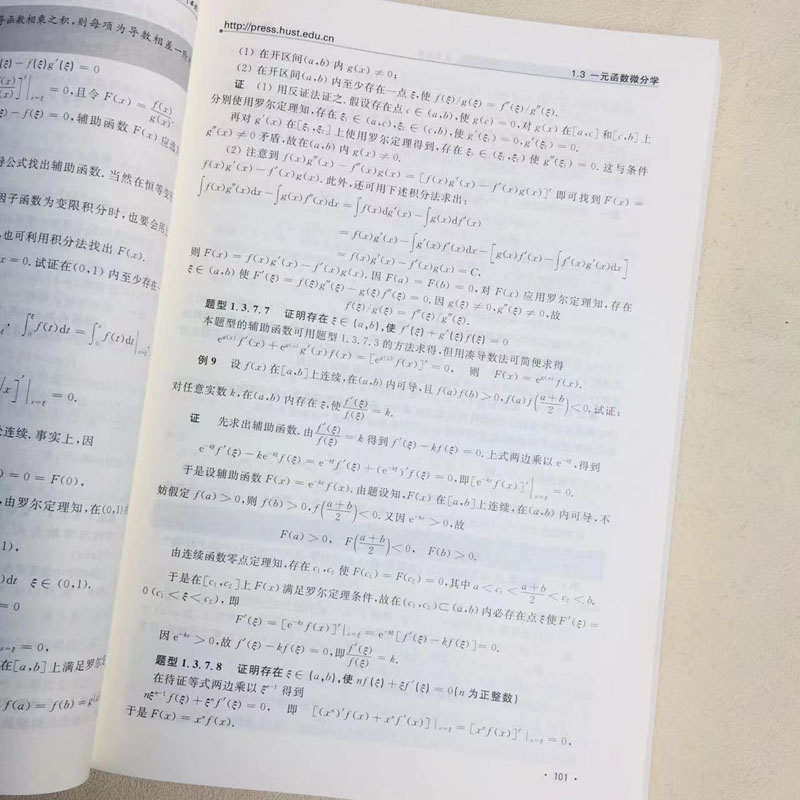 导函数相乘之积,则每项为导数相差一阶
(ξ)-f(ξ)g′(ξ)=0
(x)]′|ₓ₌ξ=0,且令 F(x)=f(x)/g(x).
ξ)-f(ξ)=0,辅助函数 F(x)应
公式找出辅助函数.当然在恒等变
因子函数为变限积分时,也要会用
也可利用积分法找出 F(x).
x=0.试证在(0,1)内至少存在一
f(t)dt=∫₀ˣf(t)dt|ₓ₌ξ
/x]′|ₓ₌ξ=0.
处连续.事实上,因
=0=F(0),
由罗尔定理知,在(0,1)
1),
)dt ξ∈(0,1).
=0
=0,
在[a,b]上满足罗尔
f(a)=f(b)=g(
http://press.hust.edu.cn
1.3 一元函数微分学
(1) 在开区间(a,b)内 g(x)≠0;
(2) 在开区间(a,b)内至少存在一点ξ,使 f(ξ)/g(ξ)=f″(ξ)/g″(ξ).
证 (1) 用反证法证之.假设存在点 c∈(a,b),使 g(c)=0,对 g(x)在[a,c]和[c,b]上
分别使用罗尔定理知,存在ξ₁∈(a,c),ξ₂∈(c,b),使 g′(ξ₁)=0,g′(ξ₂)=0.
再对 g′(x)在[ξ₁,ξ₂]上使用罗尔定理得到,存在ξ₃∈(ξ₁,ξ₂)使 g″(ξ₃)=0.这与条件
g″(x)≠0 矛盾,故在(a,b)内 g(x)≠0.
(2) 注意到 f(x)g″(x)-f″(x)g(x)=[f(x)g′(x)-f′(x)g(x)]′即可找到 F(x)=
f(x)g′(x)-f′(x)g(x).此外,还可用下述积分法求出:
∫f(x)g″(x)dx-∫g(x)f″(x)dx=∫f(x)dg′(x)-∫g(x)df′(x)
=f(x)g′(x)-∫g′(x)f′(x)dx-[g(x)f′(x)-∫f′(x)g′(x)dx]
=f(x)g′(x)-f′(x)g(x)=C,
则 F(x)=f(x)g′(x)-f′(x)g(x).因 F(a)=F(b)=0,对 F(x)应用罗尔定理知,存在
ξ∈(a,b)使 F′(ξ)=f(ξ)g″(ξ)-g(ξ)f″(ξ)=0.因 g(ξ)≠0,g″(ξ)≠0,故
f(ξ)/g(ξ)=f″(ξ)/g″(ξ).
题型 1.3.7.7 证明存在ξ∈(a,b),使 f′(ξ)+g′(ξ)f(ξ)=0
本题型的辅助函数可用题型 1.3.7.3 的方法求得,但用凑导数法可简便求得
e^{g(x)}f′(x)+e^{g(x)}g′(x)f(x)=[e^{g(x)}f(x)]′=0, 则 F(x)=e^{g(x)}f(x).
例 9 设 f(x)在[a,b]上连续,在(a,b)内可导,且 f(a)f(b)>0,f(a)f((a+b)/2)<0.试证:
对任意实数 k,在(a,b)内存在ξ,使 f′(ξ)/f(ξ)=k.
证 先求出辅助函数.由 f′(ξ)/f(ξ)=k 得到 f′(ξ)-kf(ξ)=0.上式两边乘以 e^{-kξ},得到
e^{-kξ}f′(ξ)-ke^{-kξ}f(ξ)=e^{-kξ}f′(ξ)+(e^{-kξ})′f(ξ)=0,即[e^{-kx}f(x)]′|ₓ₌ξ=0.
于是设辅助函数 F(x)=e^{-kx}f(x).由题设知,F(x)在[a,b]上连续,在(a,b)内可导,不
妨假定 f(a)>0,则 f(b)>0,f((a+b)/2)<0.又因 e^{-kx}>0,故
F(a)>0, F((a+b)/2)<0, F(b)>0.
由连续函数零点定理知,存在 c₁,c₂ 使 F(c₁)=F(c₂)=0,其中 a<c₁<(a+b)/2<c₂<b.
于是在[c₁,c₂]上 F(x)满足罗尔定理条件,故在(c₁,c₂)⊂(a,b)内必存在点ξ使 F′(ξ)=
0(c₁<ξ<c₂),即
F′(ξ)=[e^{-kx}f(x)]′|ₓ₌ξ=e^{-kξ}[f′(ξ)-kf(ξ)]=0.
因 e^{-kx}>0,故 f′(ξ)-kf(ξ)=0,即 f′(ξ)/f(ξ)=k.
题型 1.3.7.8 证明存在ξ∈(a,b),使 nf(ξ)+ξf′(ξ)=0(n 为正整数)
在待证等式两边乘以 ξⁿ⁻¹ 得到
nξⁿ⁻¹f(ξ)+ξⁿf′(ξ)=0, 即 [(xⁿ)′f(x)+xⁿf′(x)]|ₓ₌ξ=[xⁿf(x)]′|ₓ₌ξ=0,
于是 F(x)=xⁿf(x).
· 101 ·